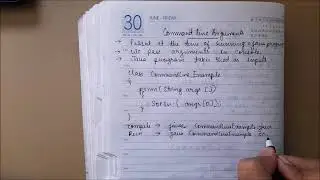 30
JUNE FRIDAY
Command Line Arguments
→ Passed at the time of running a java program
→ We pass arguments in console
→ Java program takes that as input.
class CommandLine Example
{
psvm (String args [])
{
Sopln ( args [0]);
}
}
compile → javac CommandLineExample.java
Run → java CommandLineExample